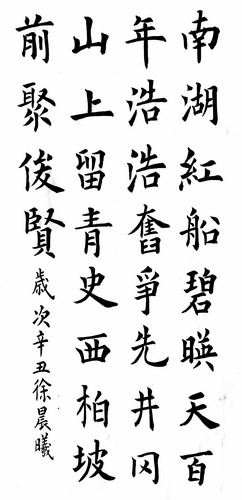 南湖紅船碧暎天百
年浩浩奮爭先井冈
山上留青史西柏坡
前聚俊賢歲次辛丑徐晨曦